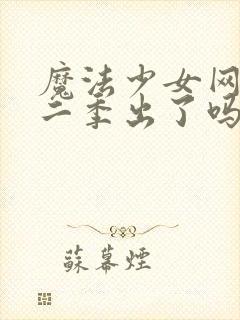 魔法少女网
二季出了吗
蘇幕煙